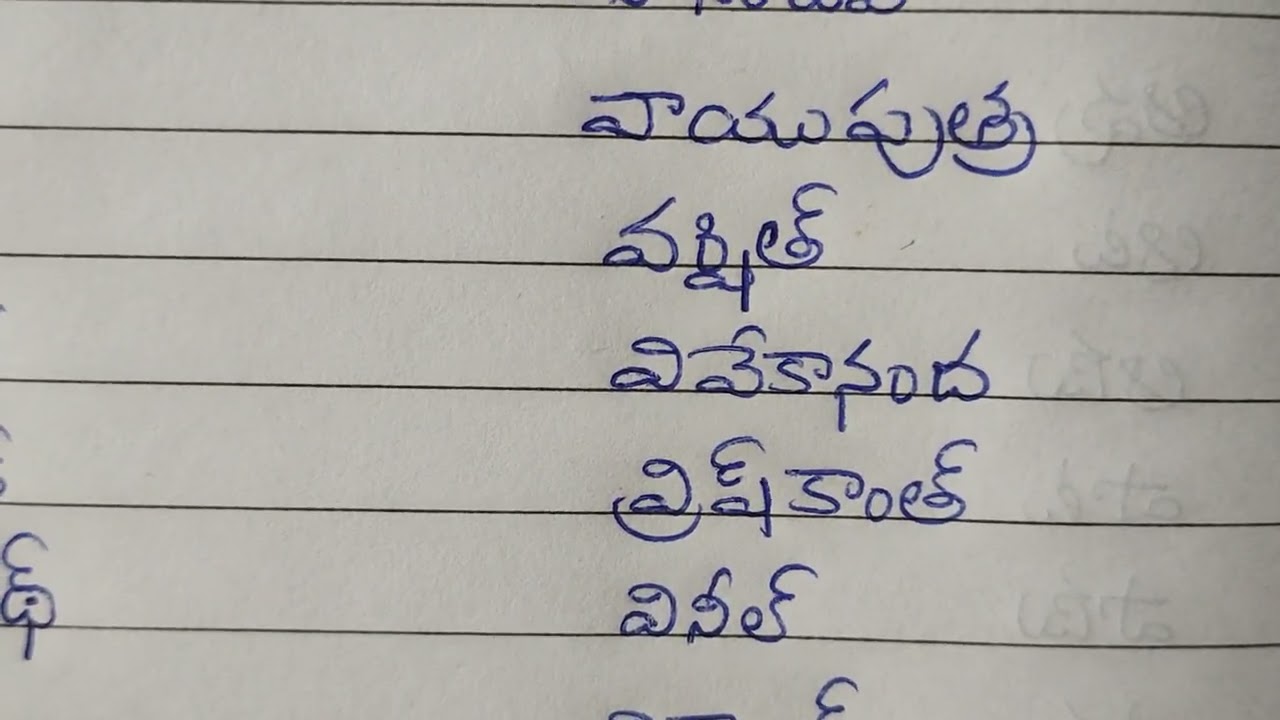 వాయుపుత్ర
వర్షిత్
వివేకానంద
వ్రిష్కాంత్
వినీల్